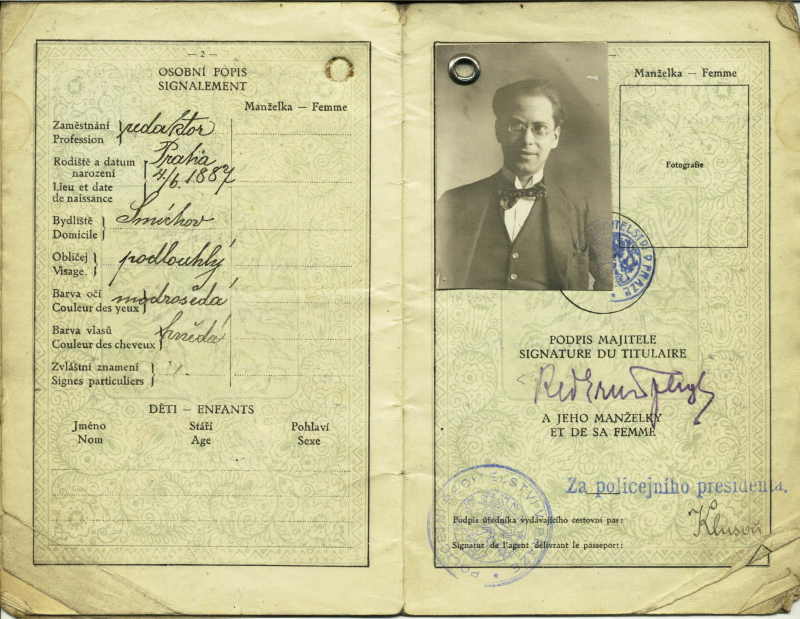 — 2 —
OSOBNÍ POPIS
SIGNALEMENT
Manželka — Femme
Zaměstnání
Profession
redaktor
Rodiště a datum
narození
Lieu et date
de naissance
Praha
4/6. 1887
Bydliště
Domicile
Smíchov
Obličej
Visage.
podlouhlý
Barva očí
Couleur des yeux
modrošedá
Barva vlasů
Couleur des cheveux
hnědá
Zvláštní znamení
Signes particuliers
DĚTI — ENFANTS
Jméno Stáří Pohlaví
Nom Age Sexe
Manželka — Femme
Fotografie
PODPIS MAJITELE
SIGNATURE DU TITULAIRE
A JEHO MANŽELKY
ET DE SA FEMME
Za policejního presidenta.
Podpis úředníka vydávajícího cestovní pas:
Signatur de l'agent délivrant le passeport: